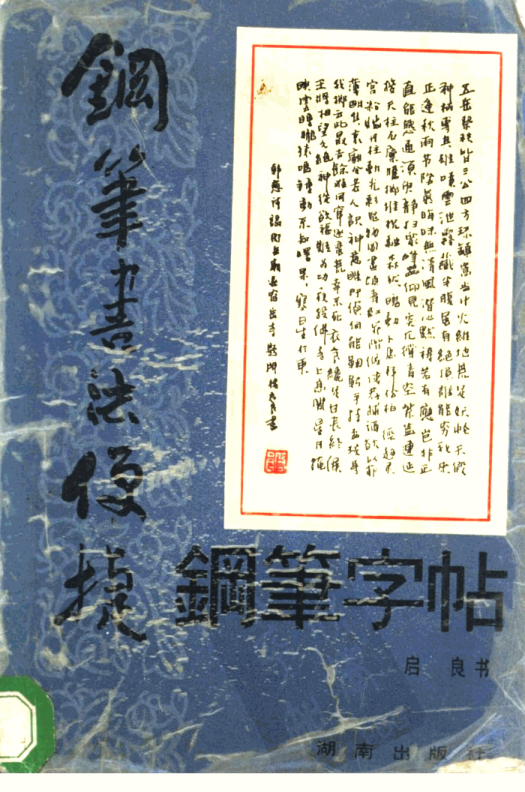 鋼筆書法便捷
五岳祭秩皆三公四方环鎮嵩当中火維地荒足妖怪天假
神柄專其雄噴雲泄霧藏半腹雖有絕頂誰能窮我來
正逢秋雨节陰氣晦昧無清風潜心默禱若有應豈非正
直能感通須臾静扫衆峰出仰見突兀撑青空紫盖連延
接天柱石廩騰擲堆祝融森然魄動下馬拜松柏一徑趨灵
宫粉墙丹柱動光彩鬼物圖畫填青紅升階傴僂薦脯酒欲以菲
薄明其衷廟令老人識神意睢盱偵伺能鞠躬手持杯珓導
我擲云此最吉余難同竄逐蠻荒幸不死衣食纔足甘長終侯
王將相望久絕神縱欲福難为功夜投佛寺上高閣星月掩
映雲曈曨猿鳴鐘動不知曙杲杲寒日生於東
鋼筆字帖
启良书
湖南出版社